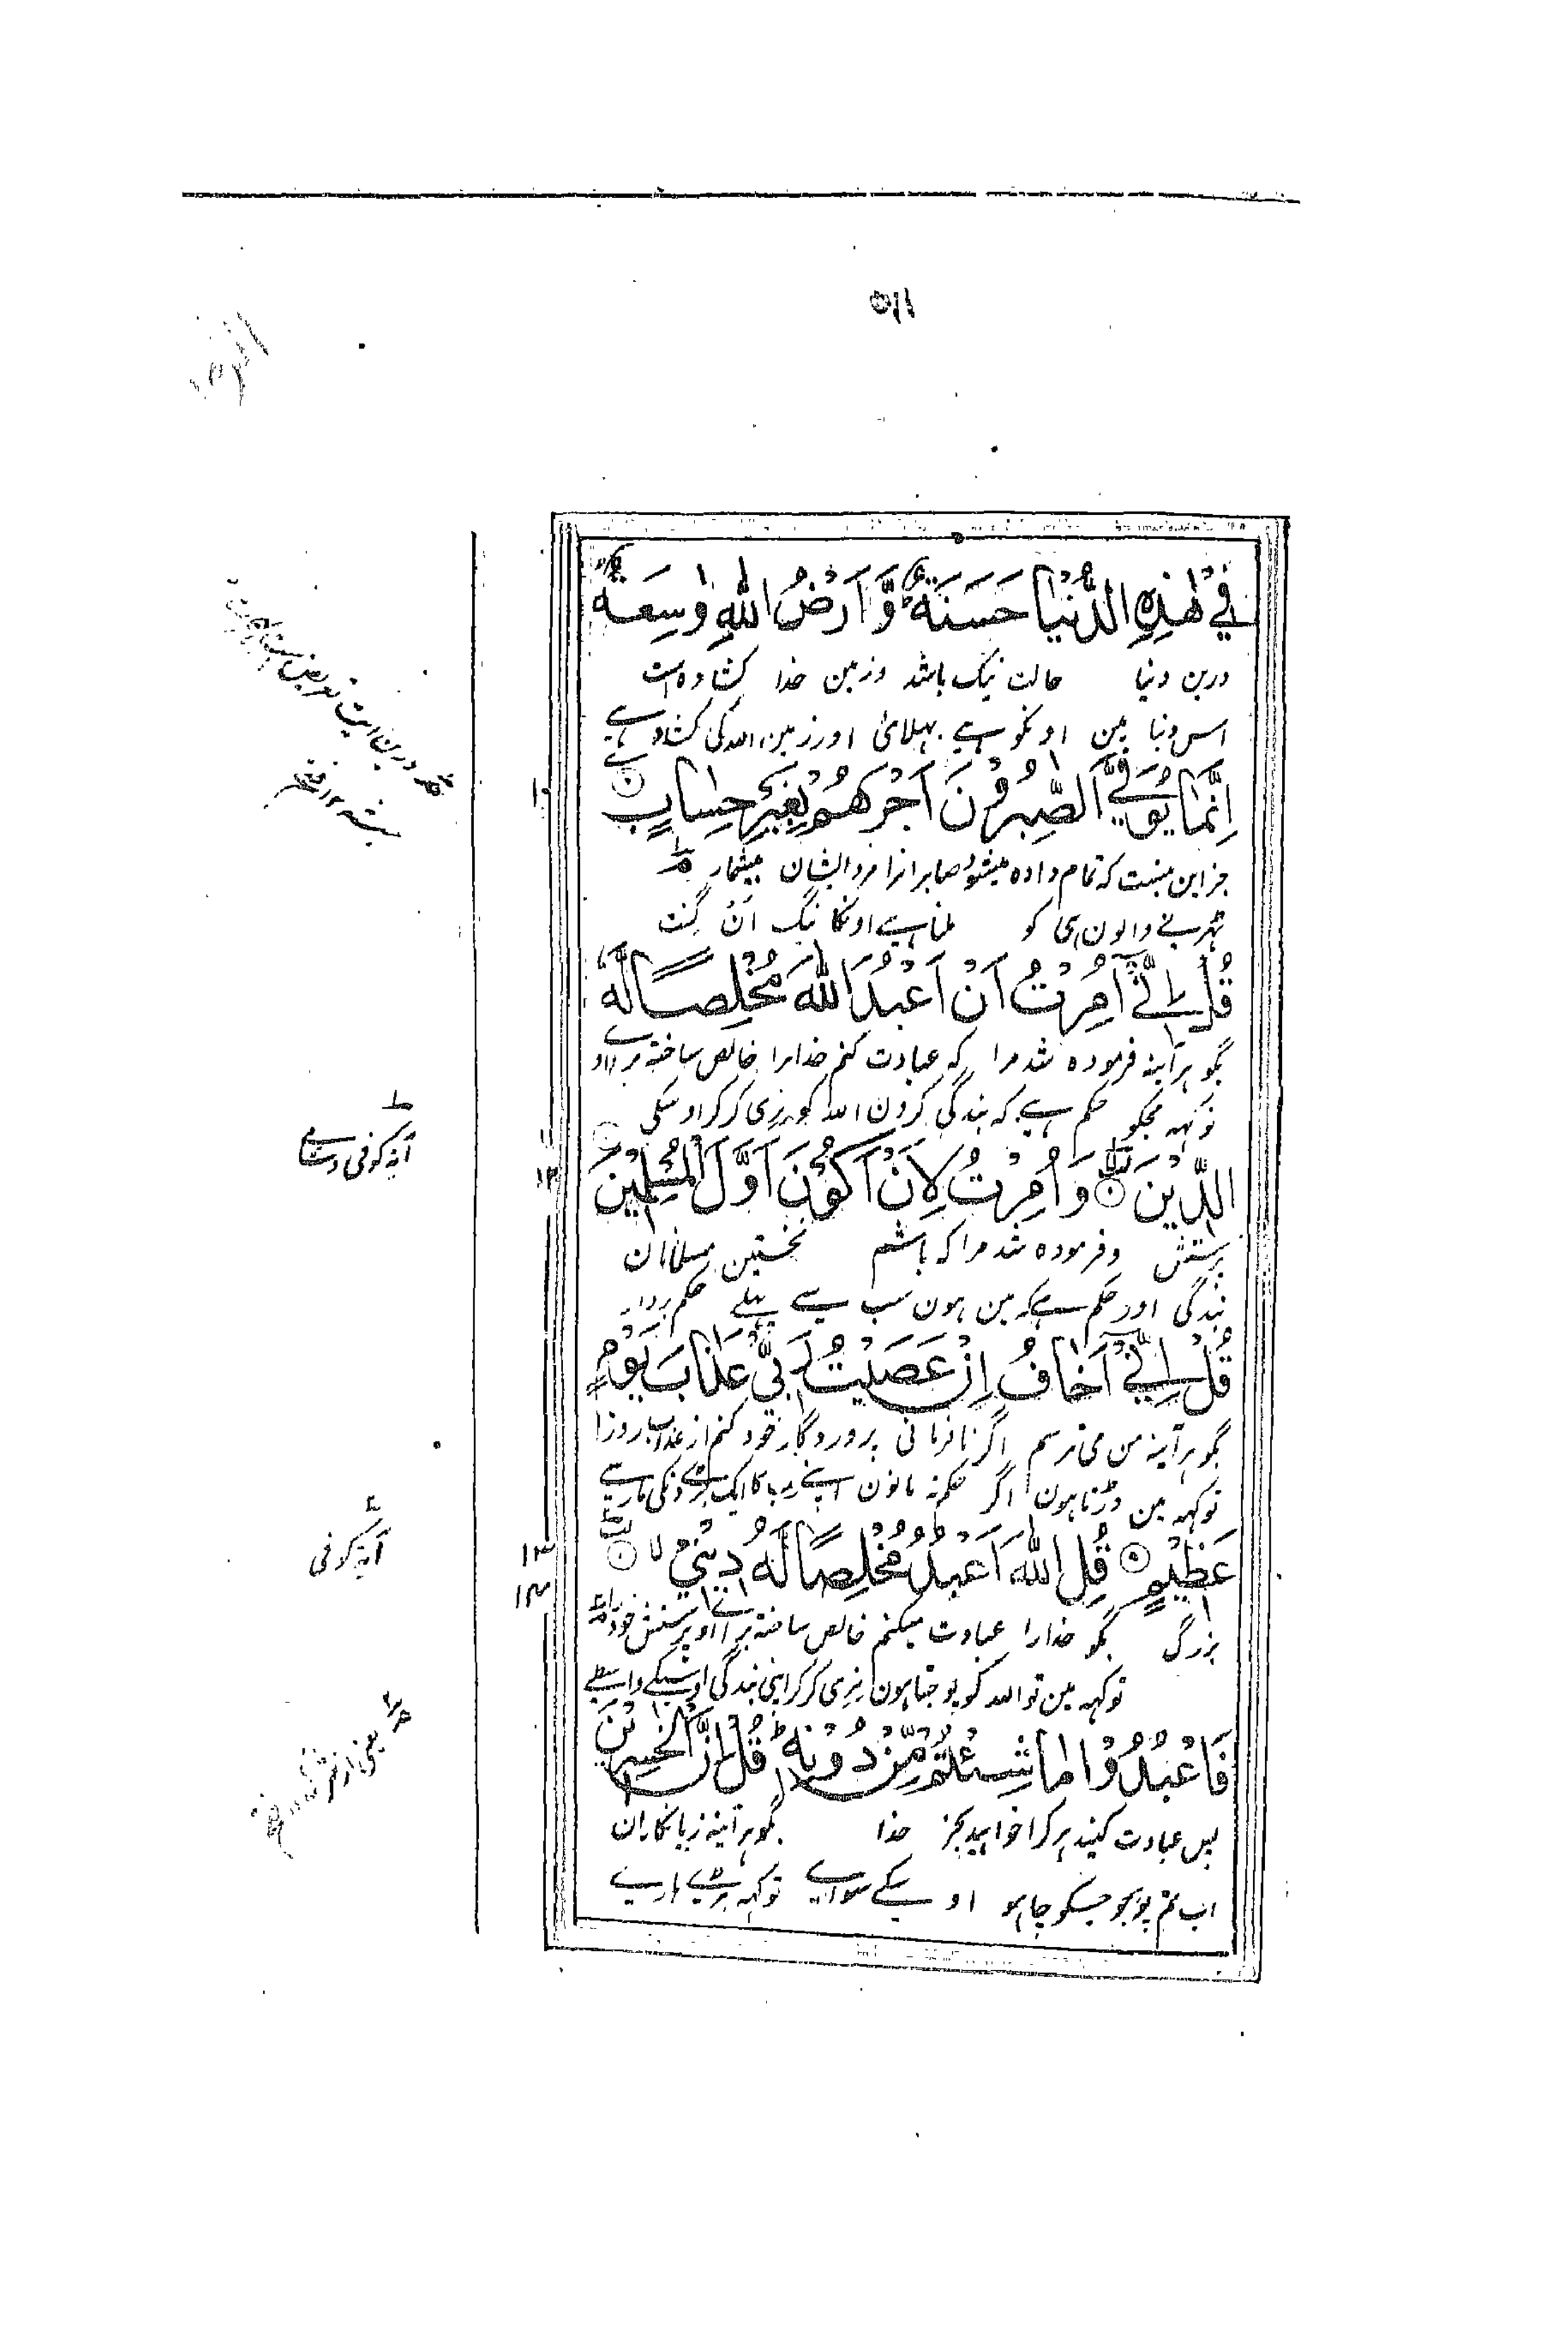 فِي هٰذِهِ الدُّنْيَا حَسَنَةٌ ؕ وَّاَرْضُ اللّٰهِ وٰسِعَةٌ
درین دنیا حالت نیک باشد وزمین خدا کشاده است
اس دنیا مین اونکو ہے بہلائی اور زمین اللہ کی کشادہ ہے
اِنَّمَا يُوَفَّى الصّٰبِرُوْنَ اَجْرَهُمْ بِغَيْرِ حِسَابٍ
۱۰
جز این نیست که تمام داده میشود صابرانرا مزد ایشان بیشمار
ٹہرنے والون ہی کو ملنا ہے اونکا نیگ ان گنت
قُلْ اِنِّيْٓ اُمِرْتُ اَنْ اَعْبُدَ اللّٰهَ مُخْلِصًا لَّهُ
بگو هرآینه فرموده شد مرا که عبادت کنم خدارا خالص ساخته برای او
تو کہہ مجکو حکم ہے کہ بندگی کرون اللہ کو نری کر کر اوسکی
الدِّيْنَ وَاُمِرْتُ لِاَنْ اَكُوْنَ اَوَّلَ الْمُسْلِمِيْنَ
۱۱
۱۲
پرستش وفرموده شد مرا که باشم نخستین مسلمانان
بندگی اور حکم ہے کہ مین ہون سب سے پہلے حکم بردار
قُلْ اِنِّيْٓ اَخَافُ اِنْ عَصَيْتُ رَبِّيْ عَذَابَ يَوْمٍ
بگو هرآینه من می ترسم اگر نافرمانی پروردگار خود کنم از عذاب روز
تو کہہ مین ڈرتا ہون اگر حکم نہ مانون اپنے رب کا ایک بڑے دنکی مار سے
عَظِيْمٍ قُلِ اللّٰهَ اَعْبُدُ مُخْلِصًا لَّهُ دِيْنِيْ ۙ
۱۳
۱۴
بزرگ بگو خدارا عبادت میکنم خالص ساخته برای او پرستش خود را
تو کہہ مین تو اللہ کو پوجتا ہون نری کر کر اپنی بندگی اوسیکے واسطے
فَاعْبُدُوْا مَا شِئْتُمْ مِّنْ دُوْنِهٖ ؕ قُلْ اِنَّ الْخٰسِرِيْنَ
پس عبادت کنید هر کرا خواهید بجز خدا بگو هرآینه زیانکاران
اب تم پوجو جسکو چاہو اوسکے سوائے تو کہہ بڑے ہارے
آیۀ کوفی وشامی
آیۀ کوفی